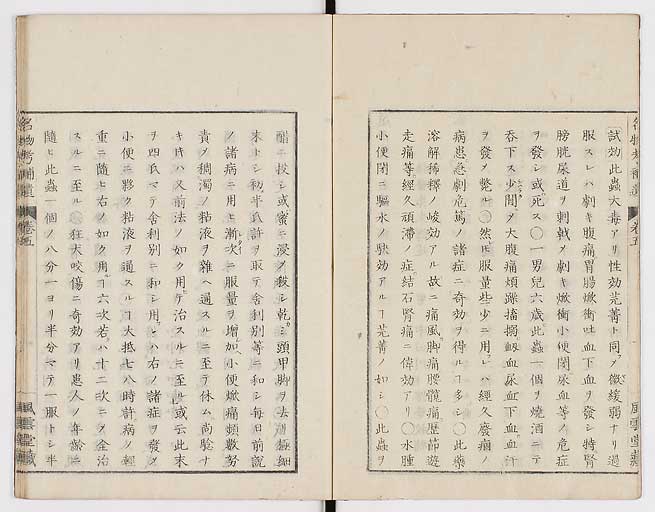 試効此蟲大毒アリ性効芫菁ト同フ〆微緩弱ナリ過
服スレハ劇キ腹痛胃腸焮衝吐血下血ヲ發シ特腎
膀胱尿道ヲ刺戟〆劇キ焮衝小便閉尿血等ノ危症
ヲ發シ或死ス〇一男兒六歳此蟲一個ヲ燒酒ニテ
吞下ス少間〆大腹痛煩躁搐搦衂血尿血下血血汁
ヲ發〆斃ル〇然ヒ服量些少ニ用レハ經久癈痼ノ
病患急劇危篤ノ諸症ニ奇効ヲ得ルヿ多シ〇此藥
溶解稀釋ノ峻効アル故ニ痛風脚痛腰髖痛歷節遊
走痛等經久頑滯ノ症結石腎痛ニ偉効アリ〇水腫
小便閉ニ驅水ノ駃効アルヿ芫菁ノ如シ〇此蟲ヲ
醋ニ投シ或蜜ニ浸〆殺シ乾シ頭甲脚ヲ去リ極細
末トシ初半氏許ヲ取テ舎利別等ニ和シ毎日前說
ノ諸病ニ用ヒ漸次ニ服量ヲ增加小便焮痛頻數努
責〆稠濁ノ粘液ヲ雜ヘ通スルニ至テ休ム尚騐ナ
キ片ハ又前法ノ如ク用テ治スルニ至ル或云此末
ヲ四氏マテ舎利別ニ和シ用レハ右ノ諸症ヲ發〆
小便ニ夥ク粘液ヲ通スルヿ大抵七八時許病ノ輕
重ニ隨ヒ右ノ如ク用ヿ六次若ハ十二次ニ〆全治
スルニ至ル〇狂犬咬傷ニ奇効アリ患人ノ年齡ニ
隨ヒ此蟲一個ノ八分一ヨリ半分マテ一服トシ半
名物考補遺 卷五
風雲堂藏